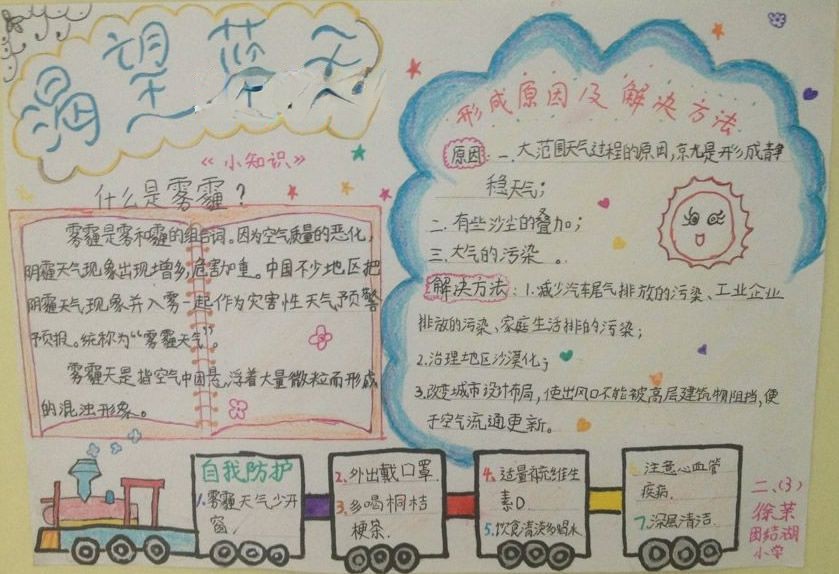 渴望蓝天
《小知识》
什么是雾霾？
雾霾是雾和霾的组合词。因为空气质量的恶化，
阴霾天气现象出现增多，危害加重。中国不少地区把
阴霾天气现象并入雾一起作为灾害性天气预警
预报。统称为“雾霾天气”。
雾霾天是指空气中因悬浮着大量微粒而形成
的混浊形象。
形成原因及解决方法
原因：一、大范围天气过程的原因，京尤是形成静
稳天气；
二、有些沙尘的叠加；
三、大气的污染。
解决方法：1.减少汽车尾气排放的污染、工业企业
排放的污染、家庭生活排的污染；
2.治理地区沙漠化；
3.改变城市设计布局，使出风口不能被高层建筑物阻挡，便
于空气流通更新。
自我防护
1、雾霾天气少开
窗、
2、外出戴口罩、
3、多喝桐桔
梗茶、
4、适量补充维生
素D、
5、饮食清淡多喝水
注意心血管
疾病、
7、深层清洁、
二、(3)
徐茉
团结湖
小学